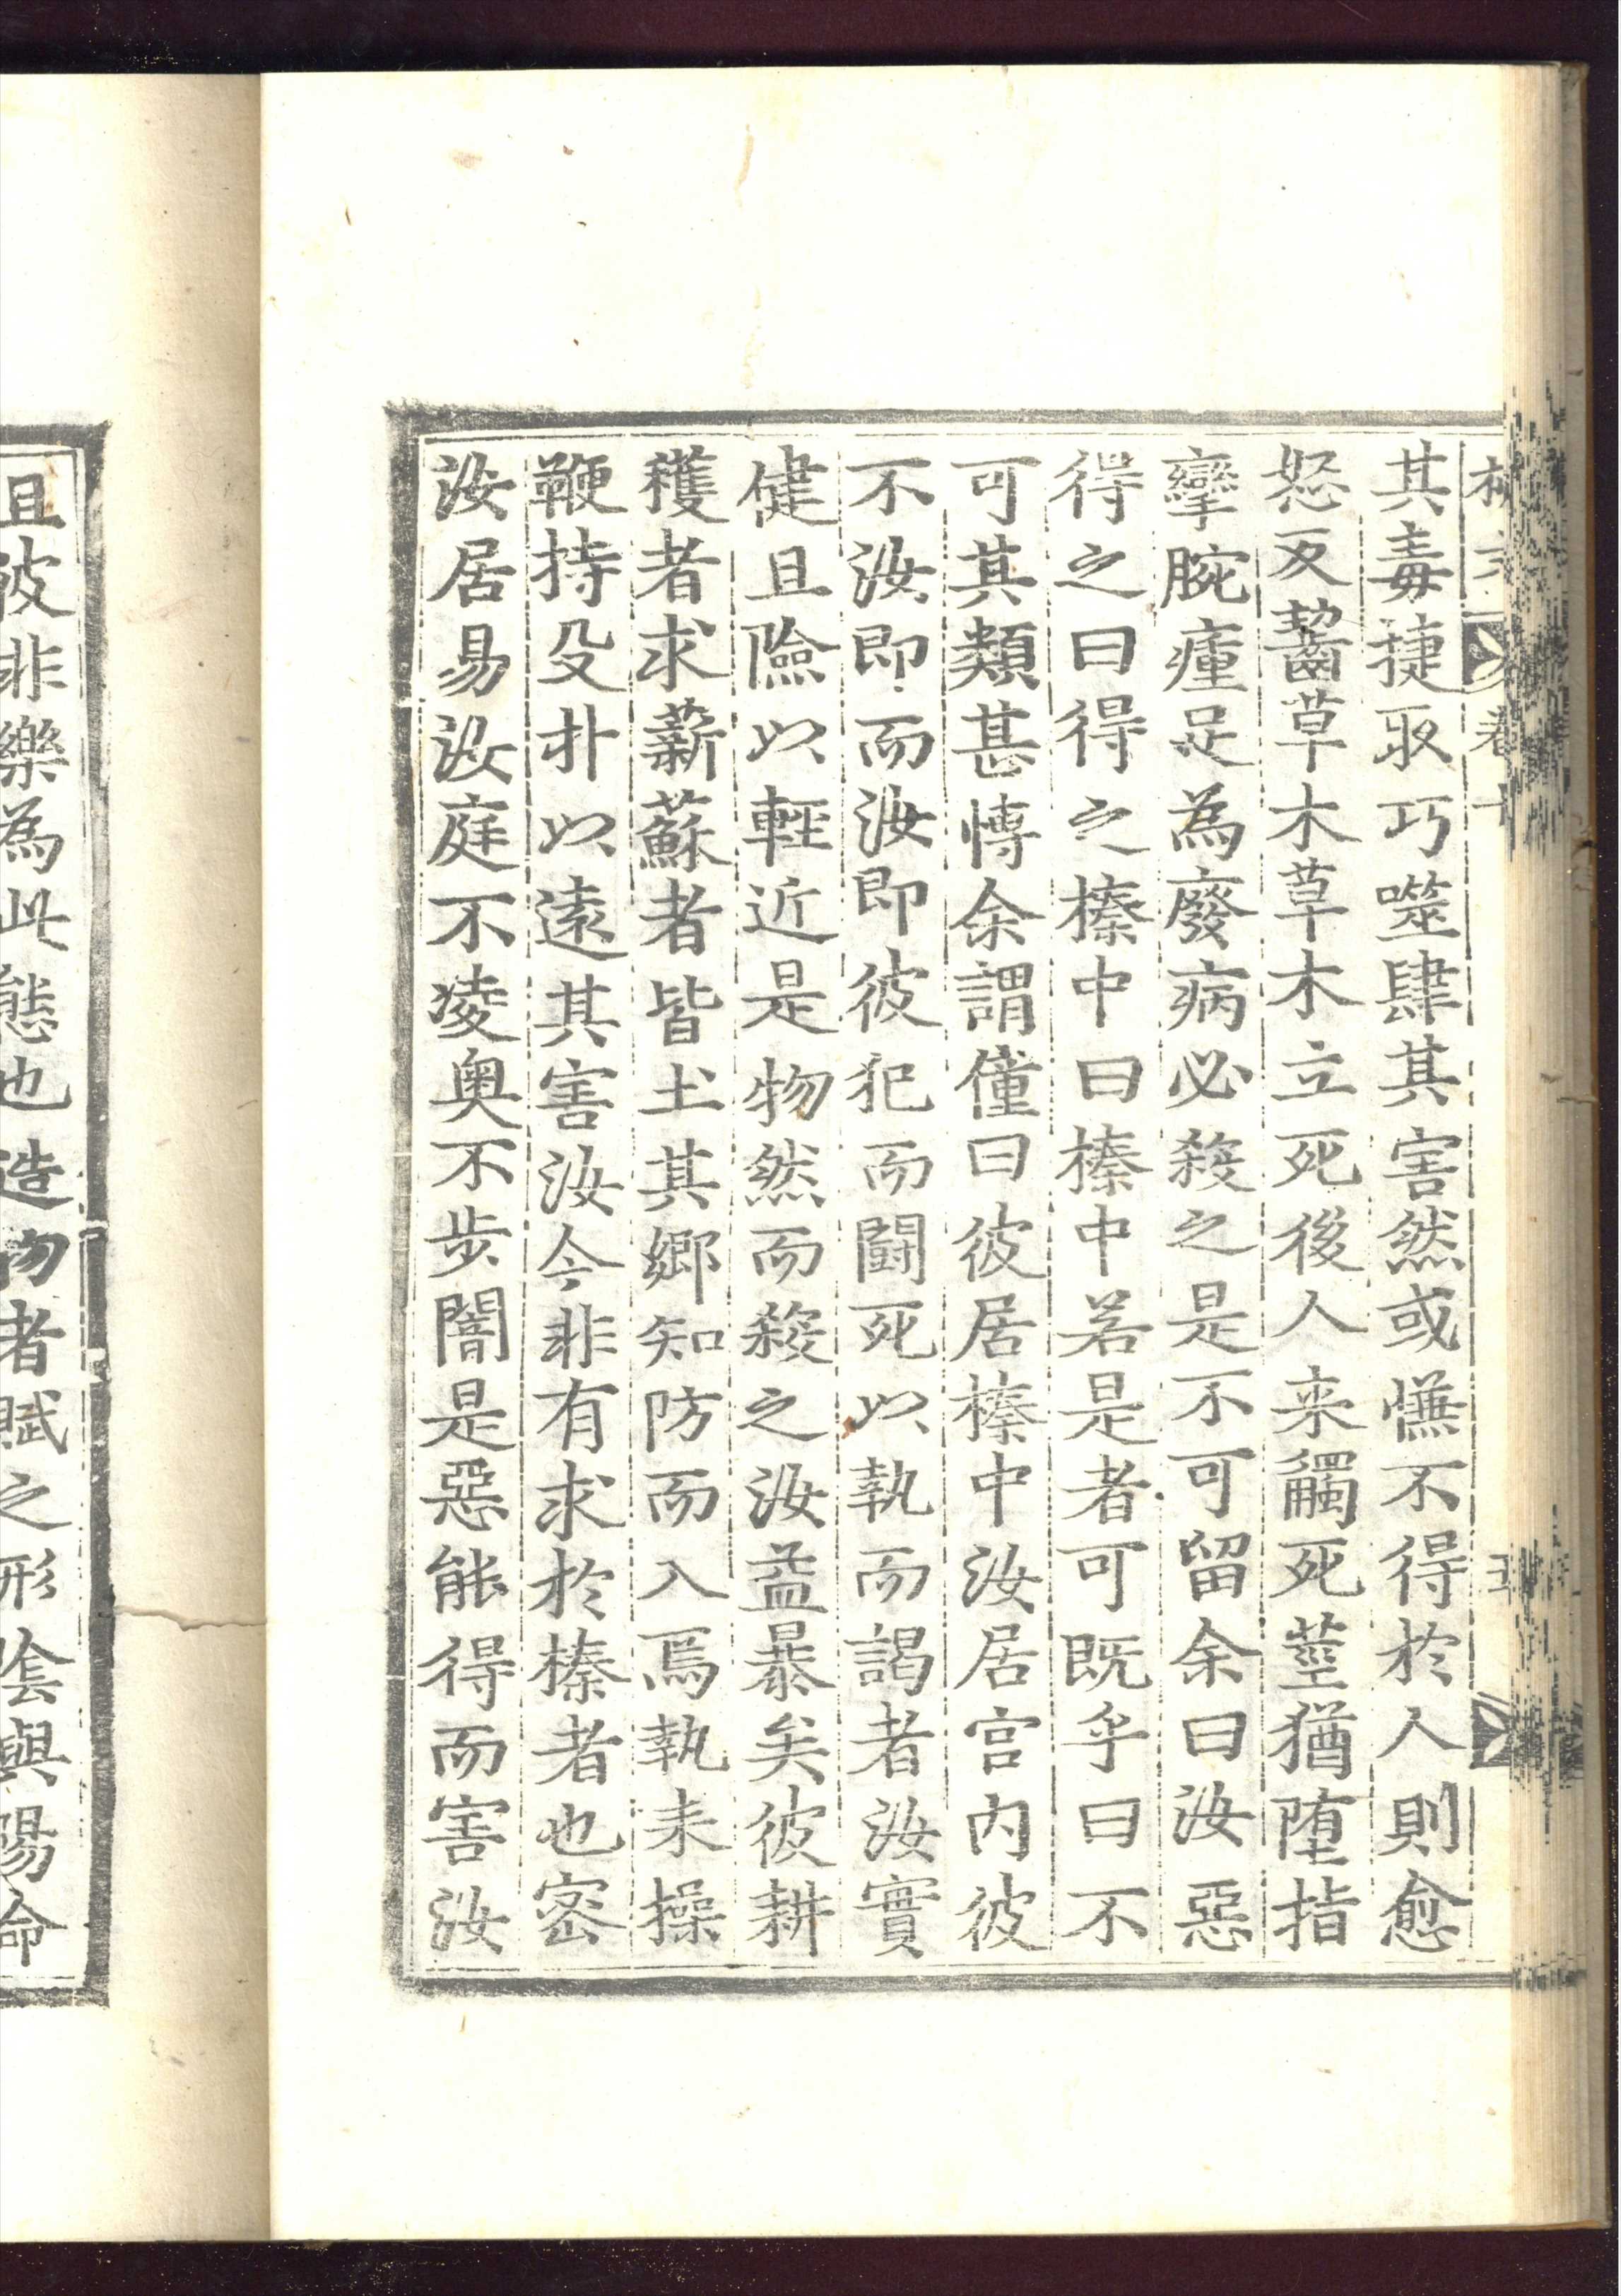 其毒捷取巧噬肆其害然或慊不得於人則愈
怒反齧草木草木立死後人来觸死莖猶堕指
攣腕瘇足為廢病必殺之是不可留余曰汝惡
得之曰得之榛中曰榛中若是者可既乎曰不
可其類甚愽余謂僮曰彼居榛中汝居宫内彼
不汝即而汝即彼犯而鬪死以執而謁者汝實
健且險以輕近是物然而殺之汝益暴矣彼耕
穫者求薪蘇者皆土其郷知防而入焉執耒操
鞭持殳扑以逺其害汝今非有求於榛者也密
汝居易汝庭不凌奥不步闇是惡能得而害汝
且彼非樂為此態也造物者賦之形隂與陽命